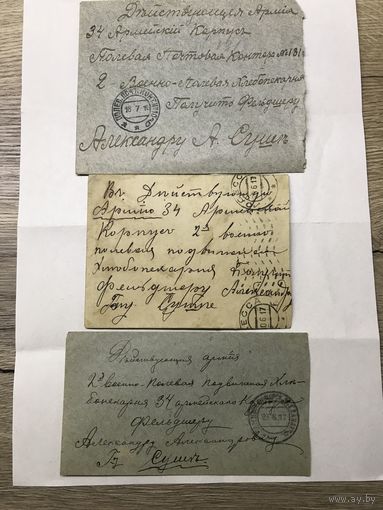 Дѣйствующая Армія
34 Армейскій Корпусъ
Полевая Почтовая Контора № 131
2 Военно-Полевая Хлебопекарня
Фельдшеру
Александру А. Сушкъ
18 7 16
Въ Дѣйствующую
Армію 34 Армейскій
Корпусъ 2ая военно
полевая подвижная
Хлебопекарня
фельдшеру Александру
Сушке
ЕСС
6 17
ЕСС
06 17
Дѣйствующая армія
2я военно-Полевая Подвижная Хлѣ-
бопекарня 34 армейского
Фельдшеру
Александру Александровичу
Сушкъ
www.ay.by